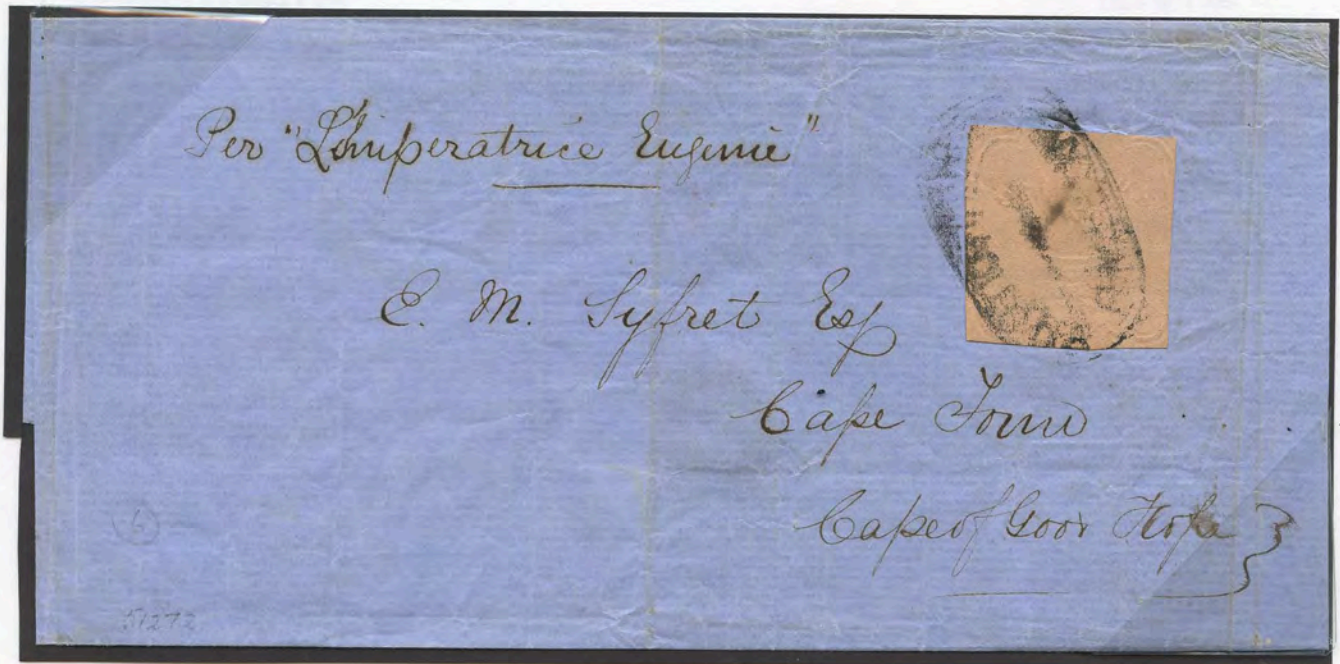 Per "L'Imperatrice Eugenie"
E. M. Syfret Esq
Cape Town
Cape of Good Hope
6
51272